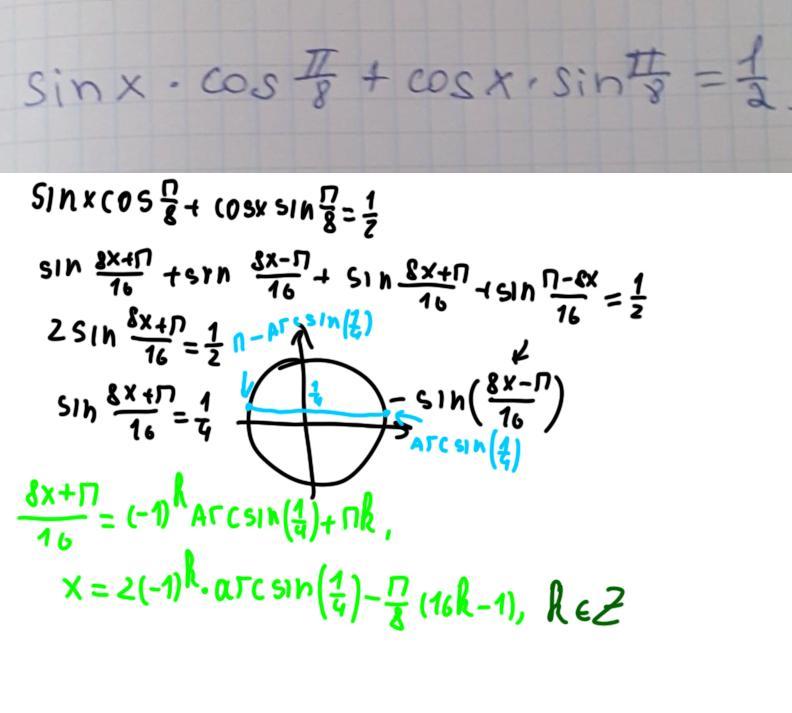 sin x · cos π/8 + cos x · sin π/8 = 1/2.
sinxcos π/8 + cosx sin π/8 = 1/2
sin (8x+π)/16 + sin (8x-π)/16 + sin (8x+π)/16 + sin (π-8x)/16 = 1/2
2 sin (8x+π)/16 = 1/2
π-Arcsin(1/4)
sin (8x+π)/16 = 1/4
1/4
- sin((8x-π)/16)
Arcsin(1/4)
(8x+π)/16 = (-1)^k Arcsin(1/4) + πk,
x = 2(-1)^k · arcsin(1/4) - π/8 (16k-1), k∈Z